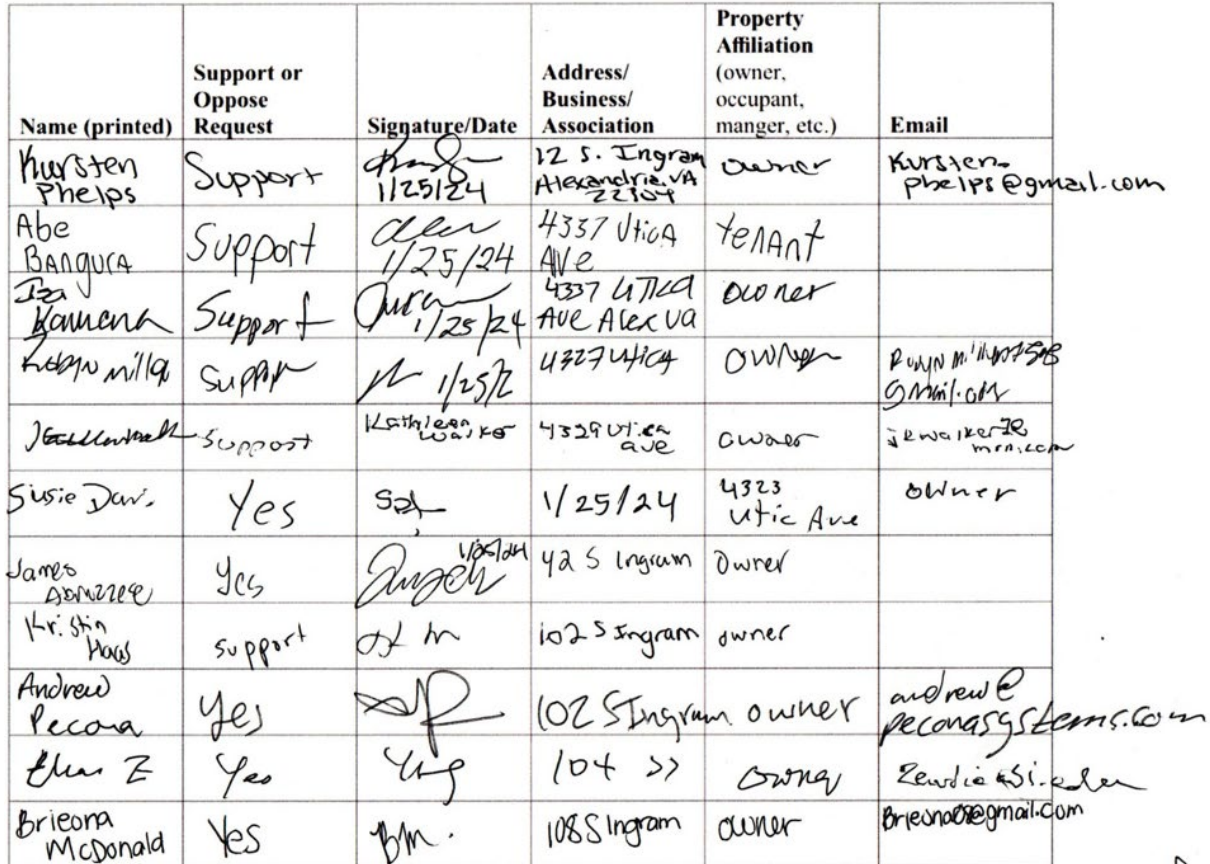 Name (printed)
Support or
Oppose
Request
Signature/Date
Address/
Business/
Association
Property
Affiliation
(owner,
occupant,
manger, etc.)
Email
Kursten
Phelps
Support
1/25/24
12 S. Ingram
Alexandria, VA
22304
owner
Kursten.
phelps@gmail.com
Abe
Bangura
Support
1/25/24
4337 Utica
Ave
tenant
Iza
Support
1/25/24
4337 Utica
Ave Alex VA
owner
Support
1/25/2
4327 Utica
owner
gmail.com
Support
Kathleen
Walker
4329 Utica
ave
owner
Susie Davi.
Yes
1/25/24
4323
Utic Ave
owner
James
Abruzzese
Yes
1/25/24
42 S Ingram
Owner
Kristin
Haas
support
102 S Ingram
owner
Andrew
Pecora
Yes
102 S Ingram
owner
andrew@
peconasystems.com
Yes
104 >>
owner
Brieona
McDonald
Yes
BM.
108 S Ingram
owner
Brieona08@gmail.com